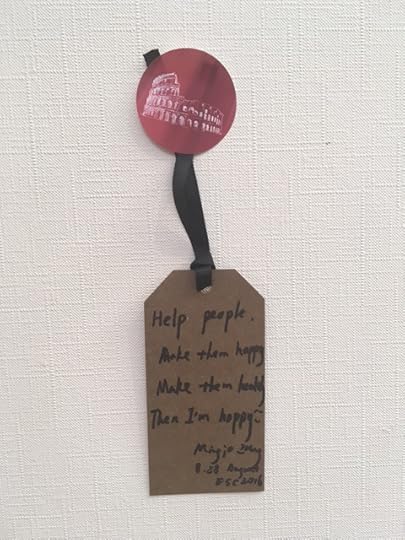 Help people.
Make them happy
Make them healthy
Then I'm happy~
8.28 August
ESC 2016